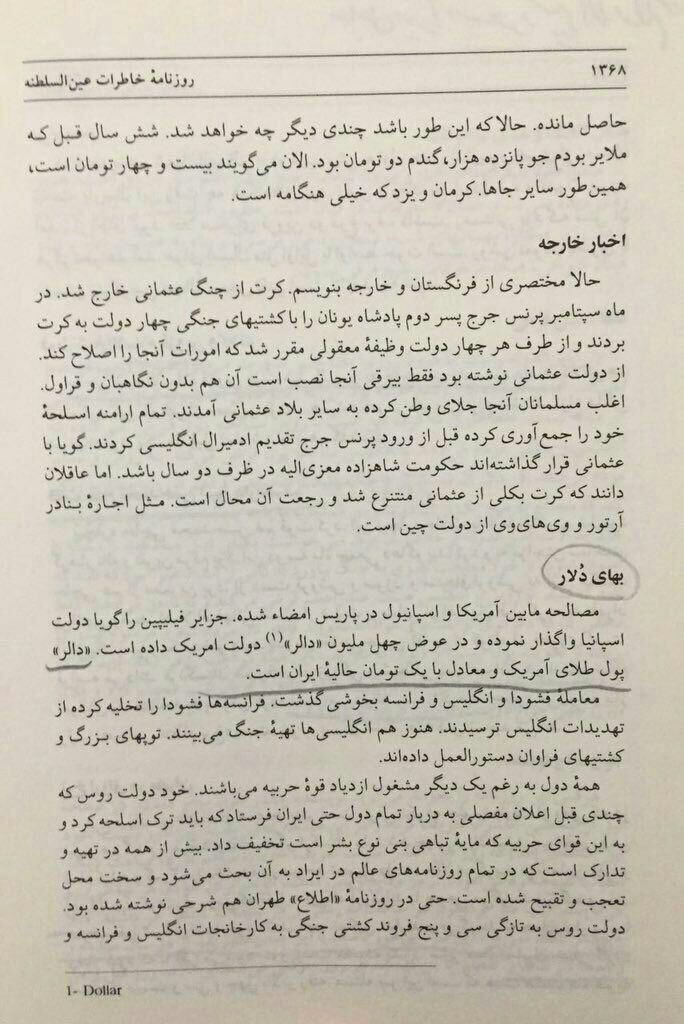 ۱۳۶۸
روزنامهٔ خاطرات عین‌السلطنه
حاصل مانده. حالا که این طور باشد چندی دیگر چه خواهد شد. شش سال قبل که
ملایر بودم جو پانزده هزار، گندم دو تومان بود. الان می‌گویند بیست و چهار تومان است،
همین‌طور سایر جاها. کرمان و یزد که خیلی هنگامه است.
اخبار خارجه
حالا مختصری از فرنگستان و خارجه بنویسم. کرت از چنگ عثمانی خارج شد. در
ماه سپتامبر پرنس جرج پسر دوم پادشاه یونان را با کشتیهای جنگی چهار دولت به کرت
بردند و از طرف هر چهار دولت وظیفهٔ معقولی مقرر شد که امورات آنجا را اصلاح کند.
از دولت عثمانی نوشته بود فقط بیرقی آنجا نصب است آن هم بدون نگاهبان و قراول.
اغلب مسلمانان آنجا جلای وطن کرده به سایر بلاد عثمانی آمدند. تمام ارامنه اسلحهٔ
خود را جمع‌آوری کرده قبل از ورود پرنس جرج تقدیم ادمیرال انگلیسی کردند. گویا با
عثمانی قرار گذاشته‌اند حکومت شاهزاده معزی‌الیه در ظرف دو سال باشد. اما عاقلان
دانند که کرت بکلی از عثمانی منتنرع شد و رجعت آن محال است. مثل اجارهٔ بنادر
آرتور و وی‌های‌وی از دولت چین است.
بهای دُلار
مصالحه مابین آمریکا و اسپانیول در پاریس امضاء شده. جزایر فیلیپین را گویا دولت
اسپانیا واگذار نموده و در عوض چهل ملیون «دالر»(۱) دولت امریک داده است. «دالر»
پول طلای آمریک و معادل با یک تومان حالیهٔ ایران است.
معاملهٔ فشودا و انگلیس و فرانسه بخوشی گذشت. فرانسه‌ها فشودا را تخلیه کرده از
تهدیدات انگلیس ترسیدند. هنوز هم انگلیسی‌ها تهیهٔ جنگ می‌بینند. توپهای بزرگ و
کشتیهای فراوان دستورالعمل داده‌اند.
همهٔ دول به رغم یک دیگر مشغول ازدیاد قوهٔ حربیه می‌باشند. خود دولت روس که
چندی قبل اعلان مفصلی به دربار تمام دول حتی ایران فرستاد که باید ترک اسلحه کرد و
به این قوای حربیه که مایهٔ تباهی بنی نوع بشر است تخفیف داد. بیش از همه در تهیه و
تدارک است که در تمام روزنامه‌های عالم در ایراد به آن بحث می‌شود و سخت محل
تعجب و تقبیح شده است. حتی در روزنامهٔ «اطلاع» طهران هم شرحی نوشته شده بود.
دولت روس به تازگی سی و پنج فروند کشتی جنگی به کارخانجات انگلیس و فرانسه و
1- Dollar